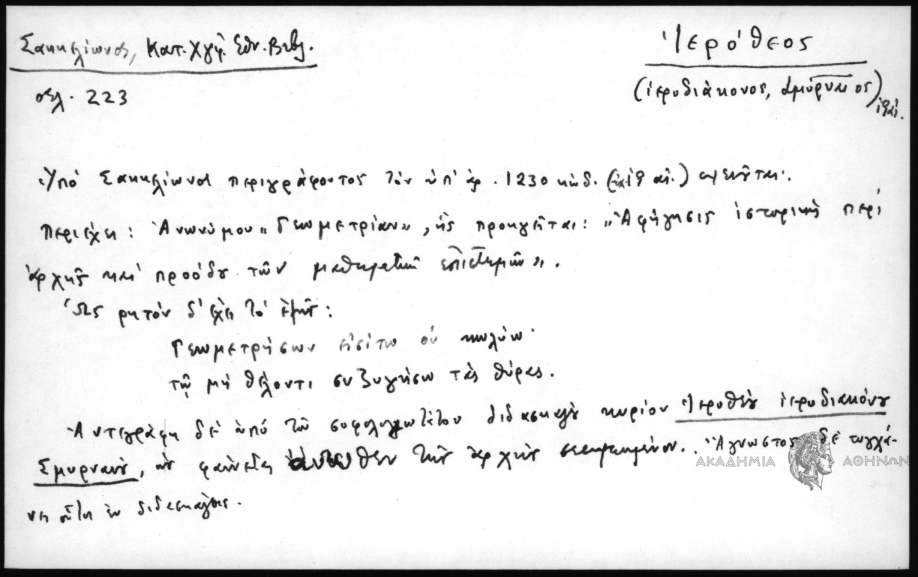 Σακκελίωνος, Κατ. Χγφ. Εθν. Βιβλ.
Ἱερόθεος
σελ. 223
(ἱεροδιάκονος, Σμυρναῖος)
Ὑπό Σακκελίωνος περιγράφοντος τόν ὑπ' ἀρ. 1230 κώδ. (19 αἰ.)
περιέχει: Ἀνωνύμου "Γεωμετρίαν", ἧς προηγεῖται: "Ἀφήγησις ἱστορική περί
ἀρχῆς καί προόδου τῶν μαθηματικῶν ἐπιστημῶν".
Ὡς ρητόν δ' ἔχει τό ἑξῆς:
Γεωμετρήσων εἰσίτω οὐ κωλύω·
τῷ μή θέλοντι συζυγήσω τάς θύρας.
Ἀντεγράφη δέ ὑπό τοῦ σοφολογιωτάτου διδασκάλου κυρίου Ἱεροθέου ἱεροδιακόνου
Σμυρναίου, ὡς φαίνεται τήν ἀρχήν. Ἄγνωστος δέ τυγχά-
νει οὗτος ἐν διδασκάλοις.
ΑΚΑΔΗΜΙΑ ΑΘΗΝΩΝ